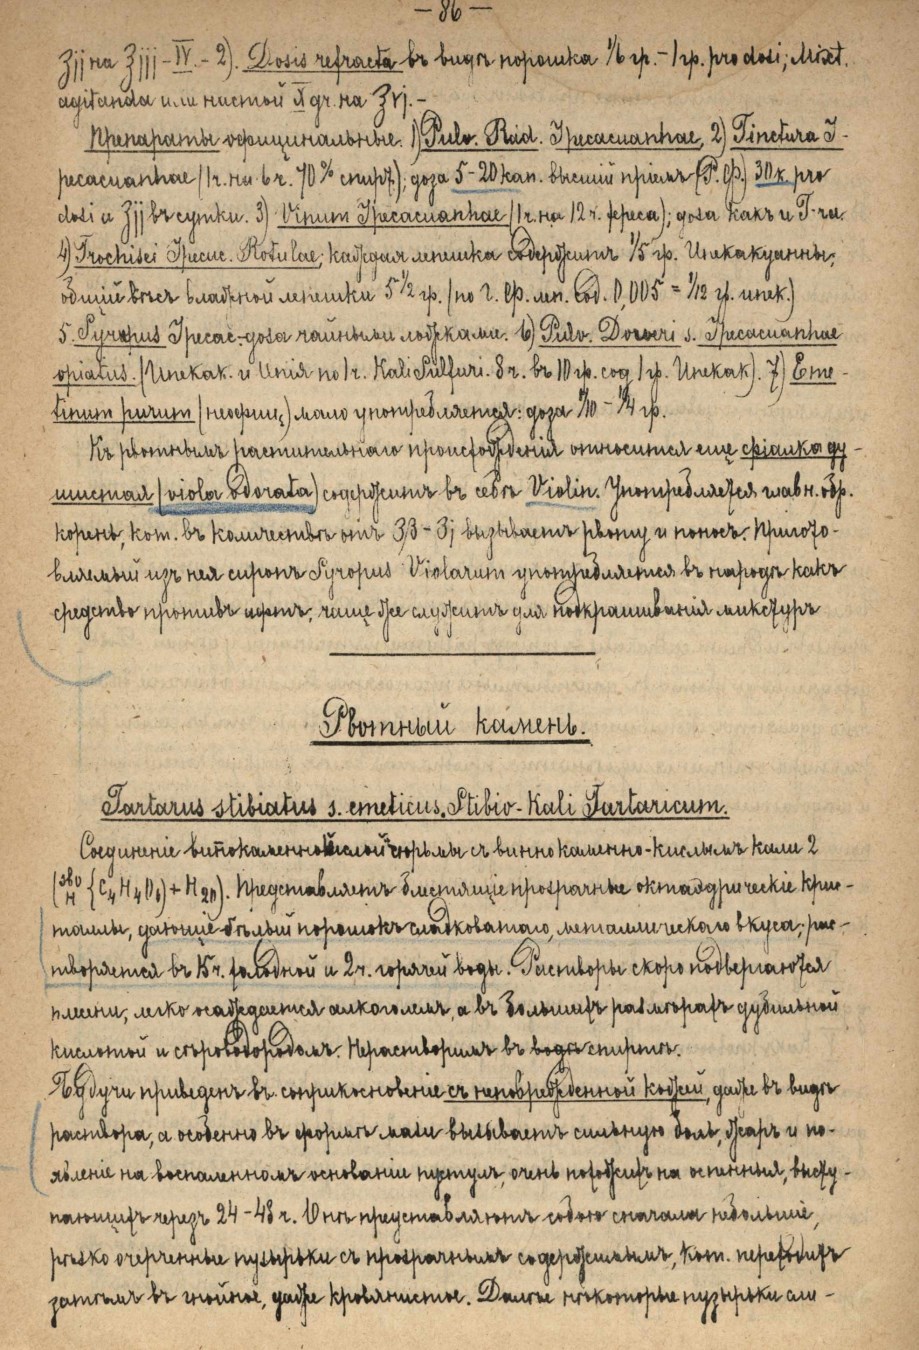 — 86 —
ʒjj на ʒjjj – IV. – 2). Dosis refracta въ видѣ порошка 1/6 гр. – 1 гр. pro dosi; Mixt.
agitanda или настой X gr. на ʒvj. –
Препараты оффицинальные. 1) Pulv. Rad. Ipecacuanhae, 2) Tinctura I-
pecacuanhae (1 ч. на 6 ч. 70% спирт.); доза 5 – 20 кап. высшій пріемъ (Р. Ф.) 30 к. pro
dosi и ʒjj въ сутки. 3) Vinum Ipecacuanhae (1 ч. на 12 ч. хереса); доза какъ и T-ra.
4) Trochisci Ipecac. Rotulae; каждая лепешка содержитъ 1/5 гр. Ипекакуанны,
общій вѣсъ каждой лепешки 5 1/2 гр. (по Г. Ф. леп. сод. 0,005 = 1/12 гр. ипек.)
5. Syrupus Ipecac – доза чайными ложками. 6) Pulv. Doweri s. Ipecacuanhae
opiatus. (Ипекак. и Опія по 1 ч. Kali Sulfuri. 8 ч. въ 10 гр. сод 1 гр. Ипекак). 7) Eme-
tinum purum (неофиц,) мало употребляется: доза 1/10 – 1/4 гр.
Къ рвотнымъ растительнаго происхожденія относится еще фіалка ду-
шистая (viola odorata) содержитъ въ себѣ Violin. Употребляется главн. обр.
корень, кот. въ количествѣ отъ ʒβ – ʒj вызываетъ рвоту и поносъ. Приготo-
вляемый изъ нея сиропъ Syropus Violarum употребляется въ народѣ какъ
средство противъ афтъ; чаще же служитъ для подкрашиванія микстуръ
Рвотный камень.
Tartarus stibiatus s. emeticus, Stibio-Kali Tartaricum.
Соединеніе виннокаменнокислой сюрьмы съ виннокаменно-кислымъ кали 2
( {C4H4O6) + H2O). Представляетъ блестящіе прозрачные октаэдрическіе крис-
таллы, дающіе бѣлый порошокъ сладковатаго, металлическаго вкуса; рас-
творяется въ 15 ч. холодной и 2 ч. горячей воды. Растворы скоро подвергаются
плесени; легко осаждается алкоголемъ, а въ большихъ размѣрахъ дубильной
кислотой и сѣроводородомъ. Нерастворимъ въ водѣ спиртѣ.
Будучи приведенъ въ соприкосновеніе съ неповрежденной кожей, даже въ видѣ
раствора, а особенно въ формѣ мази вызываетъ сильную боль, жаръ и по-
явленіе на воспаленномъ основаніи пустулъ, очень похожихъ на оспенныя, высту-
пающихъ черезъ 24 – 48 ч. Онѣ представляютъ собою сначала небольшіе,
рѣзко очерченные пузырьки съ прозрачнымъ содержимымъ, кот. переходитъ
затѣмъ въ гнойное, даже кровянистое. Далѣе нѣкоторые пузырьки сли-